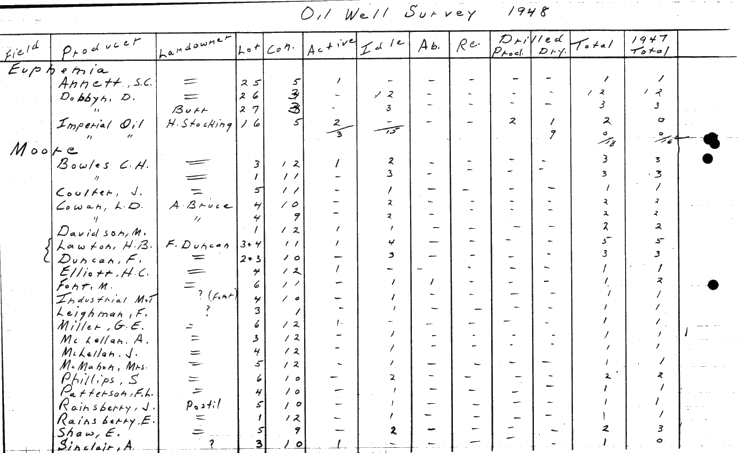 Oil Well Survey 1948
Field Producer Landowner Lot Con. Active Idle Ab. Re. Drilled Prod. Dry. Total 1947 Total
Euphemia
Annett, S.C. = 25 5 1 - - - - - 1 1
Dobbyn, D. = 26 3 - 12 - - - - 12 12
" Burr 27 3 - 3 - - - - 3 3
Imperial Oil H. Stocking 16 5 2 - - - 2 1 2 0
3 15
Moore
Bowles C.H. = 3 12 1 2 - - - - 3 3
= 1 11 - 3 - - - - 3 3
Coulter, J. = 5 11 - 1 - - - - 1 1
Cowan, L.D. A. Bruce 4 10 - 2 - - - - 2 2
" " 4 9 - 2 - - - - 2 2
Davidson, M. 1 12 1 1 - - - - 2 2
Lawton, H.B. F. Duncan 3+4 11 1 4 - - - - 5 5
Duncan, F. = 2+3 10 - 3 - - - - 3 3
Elliott, H.C. = 4 12 1 - - - - - 1 1
Font, M. = 6 11 - 1 1 - - - 1 2
Industrial ? (Font) 4 10 - 1 - - - - 1 1
Leighman, F. ? 3 1 - 1 - - - - 1 1
Miller, G.E. = 6 12 1 - - - - - 1 1
McLellan. A. = 3 12 - 1 - - - - 1 1
McLellan. J. = 4 12 - 1 - - - - 1 1
McMahon, Mrs. = 5 12 - 1 - - - - 1 1
Phillips, S = 6 10 - 2 - - - - 2 2
Patterson, F.L. = 4 10 - 1 - - - - 1 1
Rainsberry, J. Postil 5 10 - 1 - - - - 1 1
Rainsberry, E. = 1 12 - 1 - - - - 1 1
Shaw, E. = 5 9 - 2 - - - - 2 3
Sinclair, A. ? 3 10 1 - - - - - 1 0